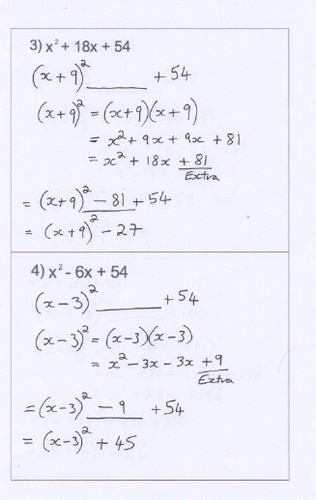 3) x² + 18x + 54
(x+9)² ______ + 54
(x+9)² = (x+9)(x+9)
= x² + 9x + 9x + 81
= x² + 18x + 81
Extra
= (x+9)² - 81 + 54
= (x+9)² - 27
4) x² - 6x + 54
(x-3)² ______ + 54
(x-3)² = (x-3)(x-3)
= x² - 3x - 3x + 9
Extra
= (x-3)² - 9 + 54
= (x-3)² + 45